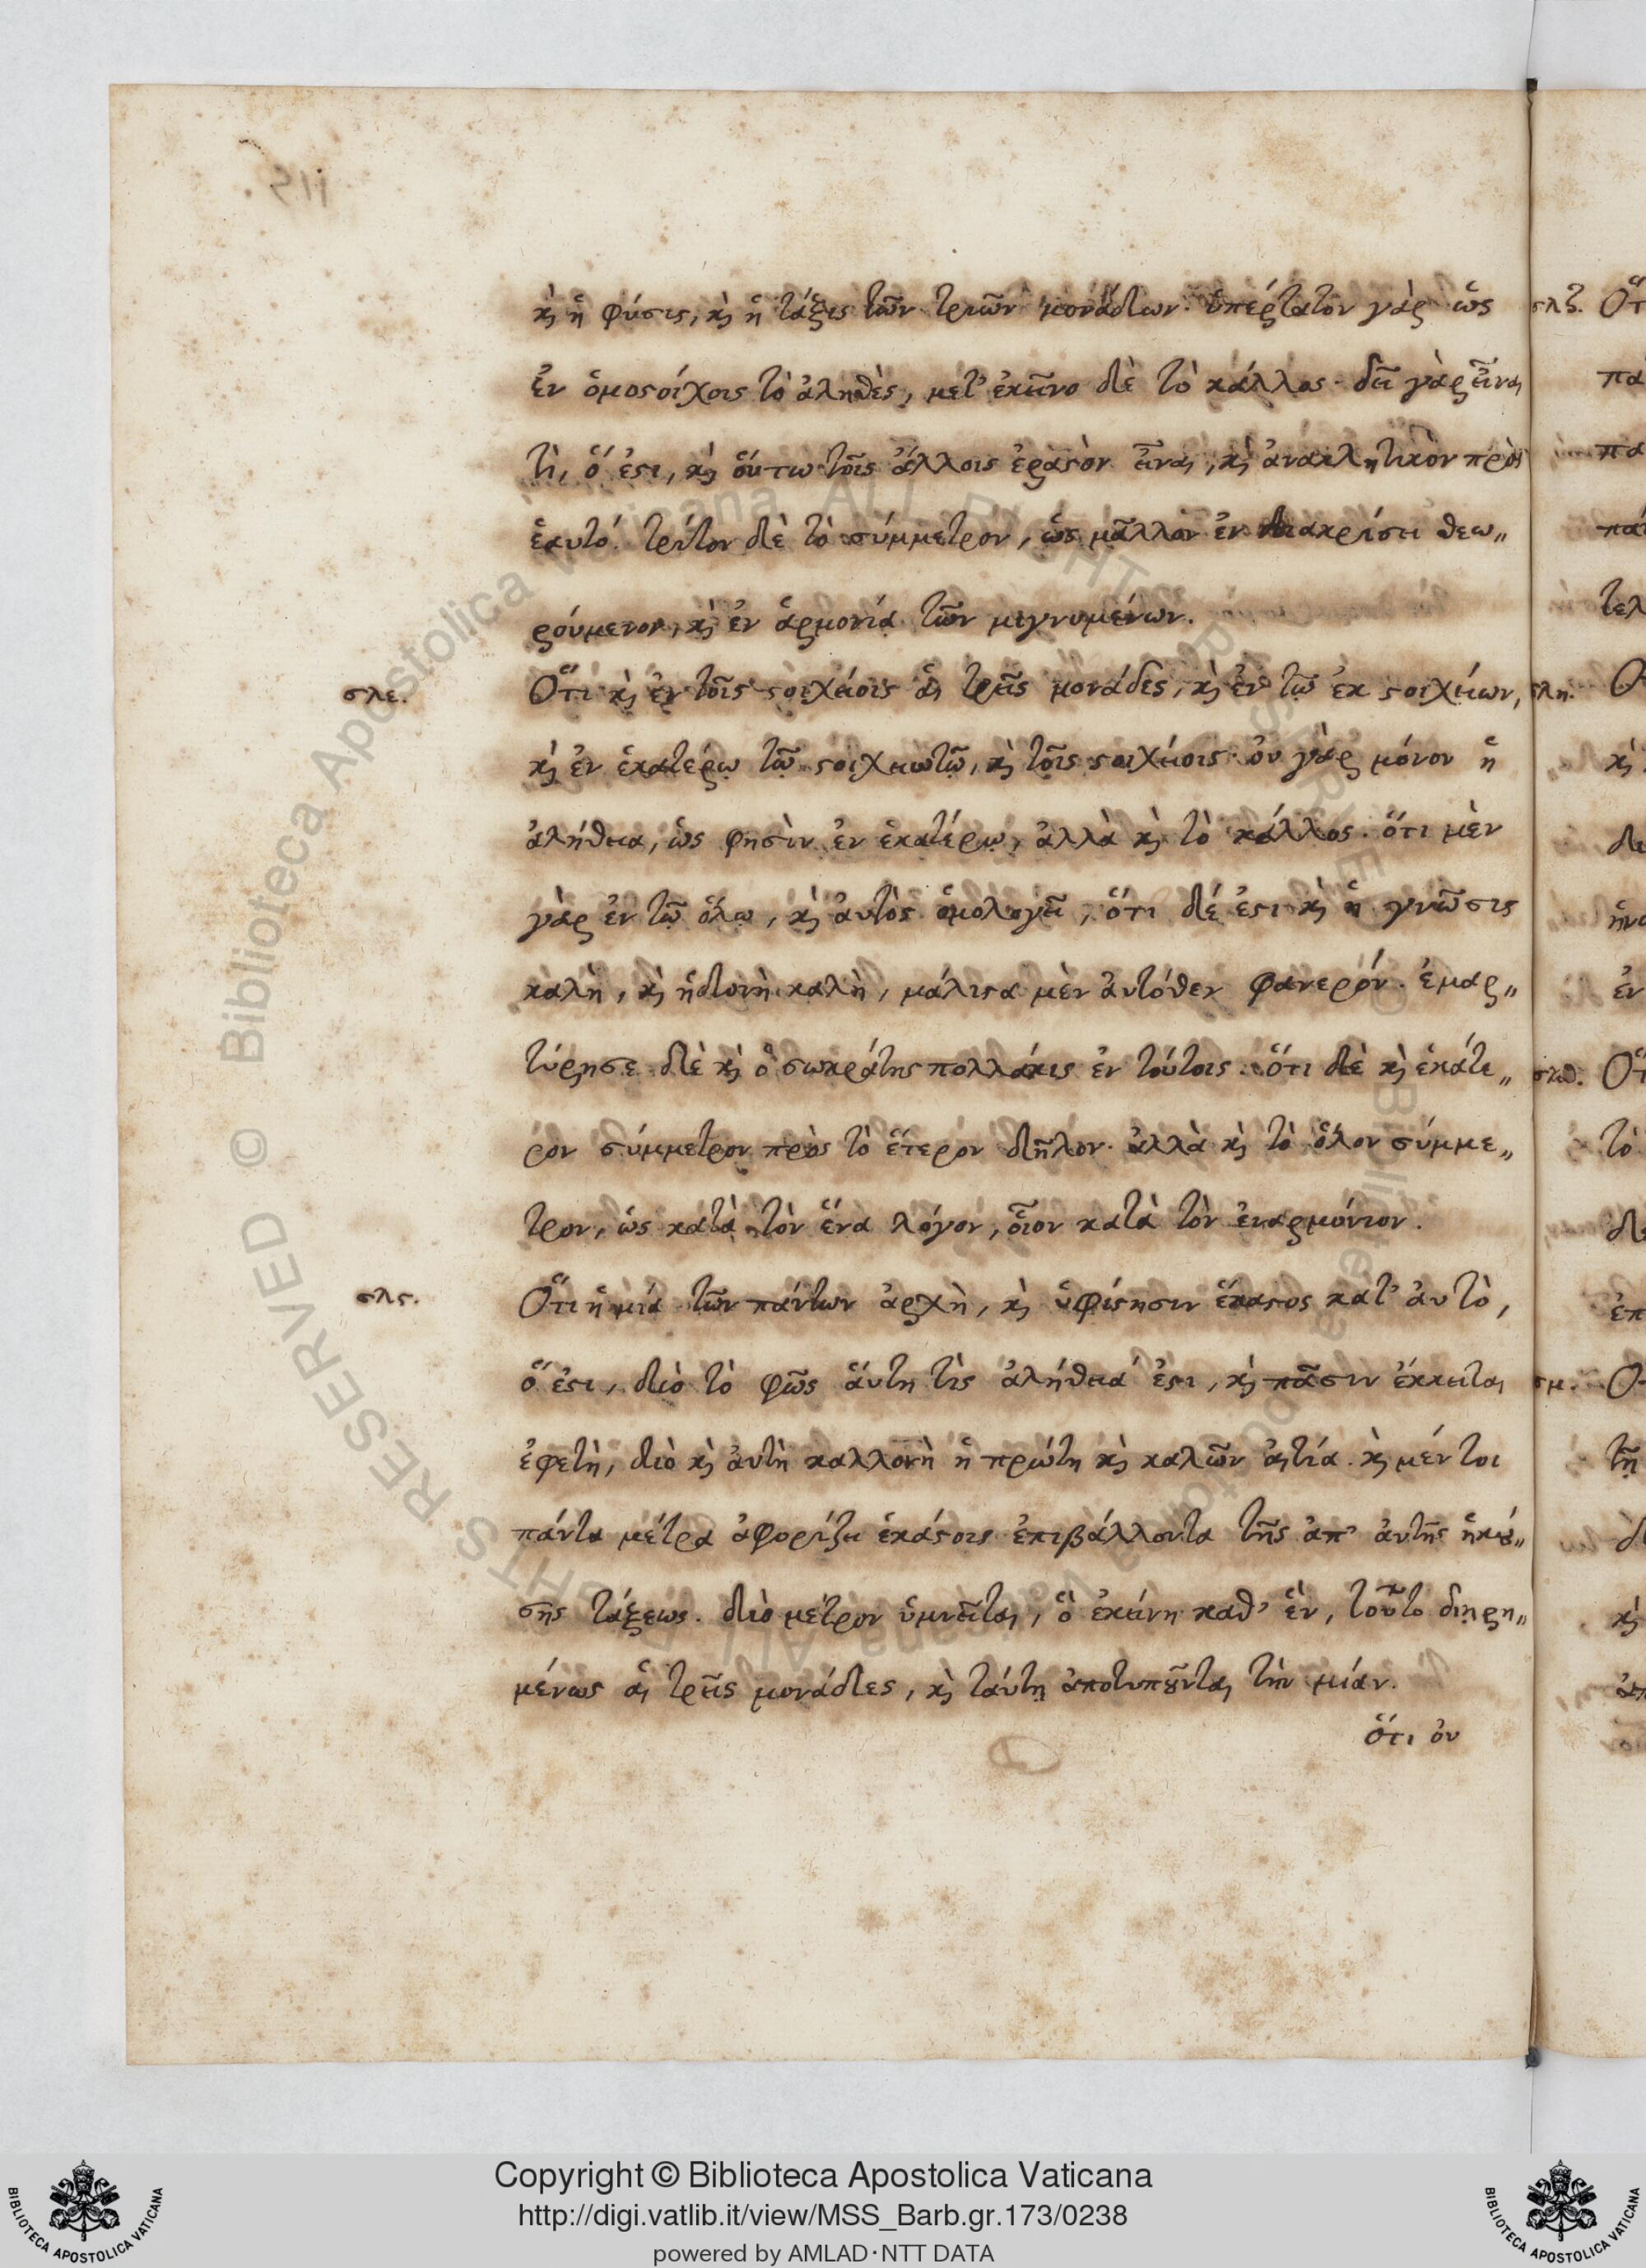 καὶ ἡ φύσις, καὶ ἡ τάξις τῶν τριῶν μονάδων. ὑπέρτατον γὰρ ὡς
ἐν ὁμοστοίχοις τὸ ἀληθὲς, μετ' ἐκεῖνο δὲ τὸ κάλλος. δεῖ γὰρ εἶναι
τὶ, ὅ ἐστι, καὶ οὕτω τοῖς ἄλλοις ἐραστὸν εἶναι, καὶ ἀνακλητικὸν πρὸς
ἑαυτό. τρίτον δὲ τὸ σύμμετρον, ὡς μᾶλλον ἐν διακρίσει θεω„
ρούμενον, καὶ ἐν ἁρμονίᾳ τῶν μιγνυμένων.
σλε. Ὅτι καὶ ἐν τοῖς στοιχείοις αἱ τρεῖς μονάδες, καὶ ἐν τῷ ἐκ στοιχείων,
καὶ ἐν ἑκατέρῳ τῷ στοιχειωτῷ, καὶ τοῖς στοιχείοις. οὐ γὰρ μόνον ἡ
ἀλήθεια, ὡς φησὶν ἐν ἑκατέρῳ, ἀλλὰ καὶ τὸ κάλλος. ὅτι μὲν
γὰρ ἐν τῷ ὅλῳ, καὶ αὐτὸς ὁμολογεῖ, ὅτι δέ ἐστι καὶ ἡ γνῶσις
καλὴ, καὶ ἡδονὴ καλὴ, μάλιστα μὲν αὐτόθεν φανερόν. ἐμαρ„
τύρησε δὲ καὶ ὁ σωκράτης πολλάκις ἐν τούτοις. ὅτι δὲ καὶ ἑκάτε„
ρον σύμμετρον πρὸς τὸ ἕτερον δῆλον. ἀλλὰ καὶ τὸ ὅλον σύμμε„
τρον, ὡς κατὰ τὸν ἕνα λόγον, οἷον κατὰ τὸν ἐναρμόνιον.
σλϛ. Ὅτι ἡ μία τῶν πάντων ἀρχὴ, καὶ ὑφίστησιν ἕκαστος κατ' αὐτὸ,
ὅ ἐστι, διὸ τὸ φῶς αὕτη τὶς ἀλήθειά ἐστι, καὶ πᾶσιν ἔκκειται
ἐφετὴ, διὸ καὶ αὐτὴ καλλονὴ ἡ πρώτη καὶ καλῶν αἰτία. καὶ μέντοι
πάντα μέτρα ἀφορίζει ἑκάστοις ἐπιβάλλοντα τῆς ἀπ' αὐτῆς ἡκού„
σης τάξεως. διὸ μέτρον ὑμνεῖται, ὃ ἐκείνη καθ' ἓν, τοῦτο διῃρη„
μένως αἱ τρεῖς μονάδες, καὶ ταύτῃ ἀποτυποῦνται τὴν μίαν.
ὅτι οὐ
Copyright © Biblioteca Apostolica Vaticana
http://digi.vatlib.it/view/MSS_Barb.gr.173/0238
powered by AMLAD·NTT DATA
BIBLIOTECA APOSTOLICA VATICANA
BIBLIOTECA APOSTOLICA VATICANA
© Biblioteca Apostolica Vaticana ALL RIGHTS RESERVED
© Biblioteca Apostolica Vaticana ALL RIGHTS RESERVED